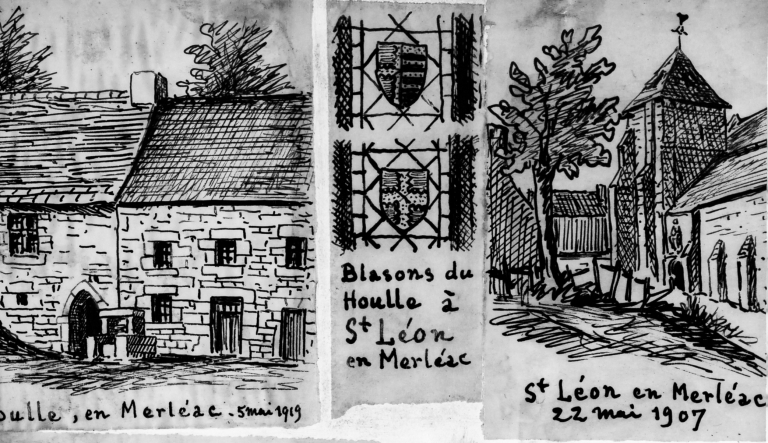 oulle, en Merléac. 5 mai 1919
Blasons du
Houlle à
St Léon
en Merléac
St Léon en Merléac
22 mai 1907